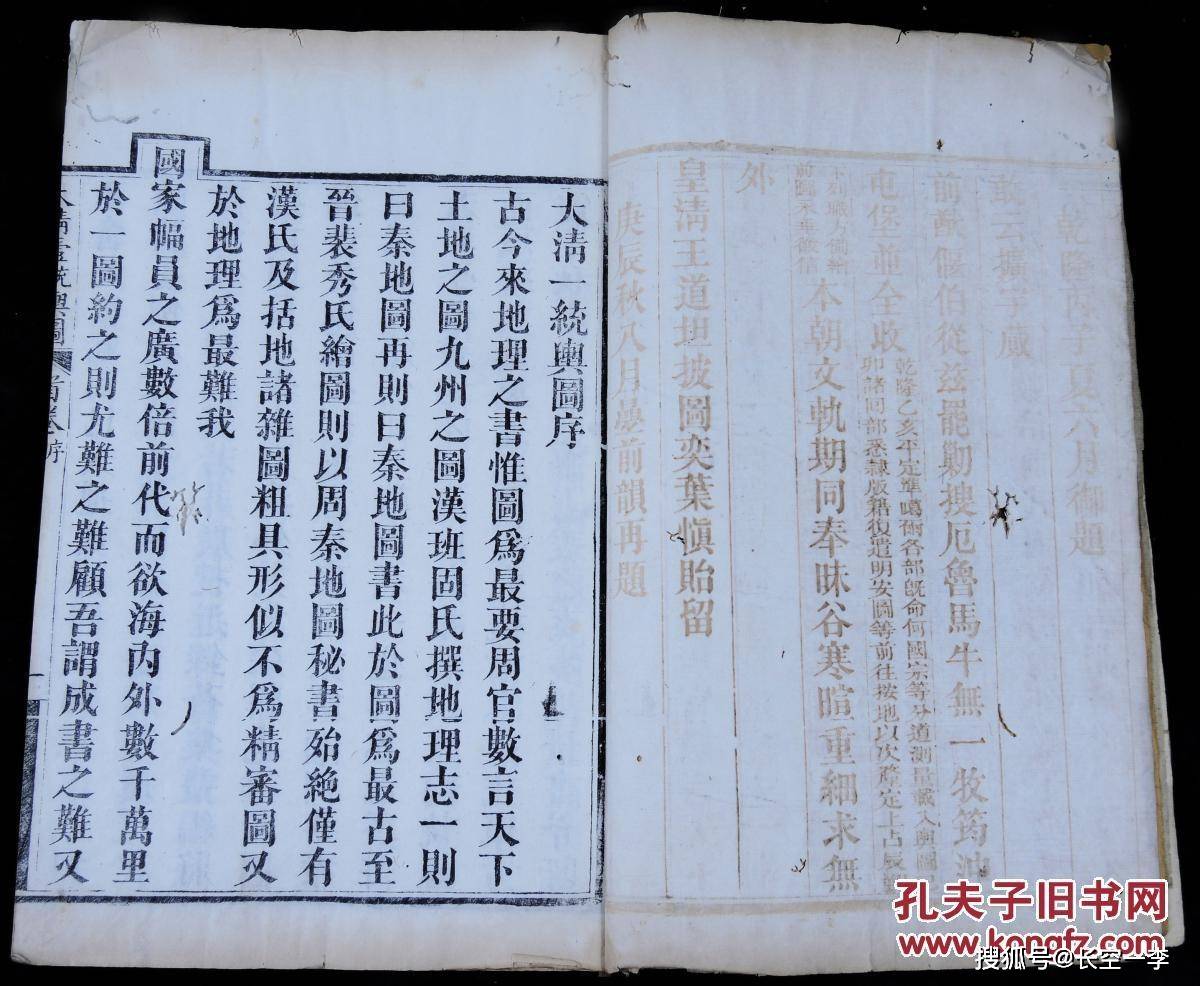 乾隆丙子夏六月御題
前猷偃伯從茲罷勦捜厄魯馬牛無一牧筠
屯堡並全收
乾隆乙亥平定準噶爾各部既命何國宗等分道測量載入輿圖
卯諸回部悉隸版籍復遣明安圖等前往按地以次釐定上占辰
本朝文軌期同奉昧谷寒暄重細求無
外
皇清王道坦披圖奕葉慎貽留
庚辰秋八月疊前韻再題
大清一統輿圖序
古今來地理之書惟圖爲最要周官數言天下
土地之圖九州之圖漢班固氏撰地理志一則
曰秦地圖再則曰秦地圖書此於圖爲最古至
晉裴秀氏繪圖則以周秦地圖秘書殆絶僅有
漢氏及括地諸雜圖粗具形似不爲精審圖又
於地理爲最難我
國家幅員之廣數倍前代而欲海內外數千萬里
於一圖約之則尤難之難顧吾謂成書之難又
大清壹統輿圖 首卷 序 一
孔夫子旧书网
www.kongfz.com
搜狐号@长空一李